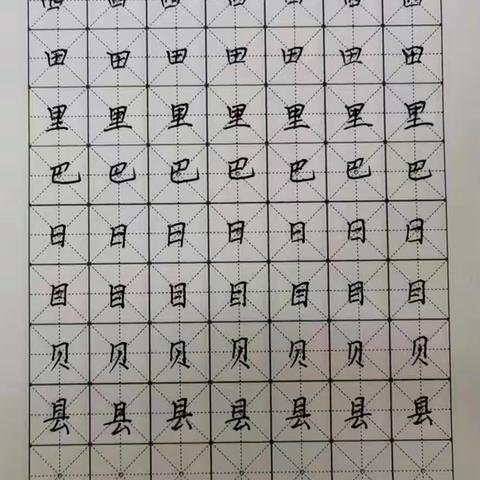 田 田 田 田 田 田 田
里 里 里 里 里 里 里
巴 巴 巴 巴 巴 巴 巴
日 日 日 日 日 日 日
目 目 目 目 目 目 目
贝 贝 贝 贝 贝 贝 贝
县 县 县 县 县 县 县